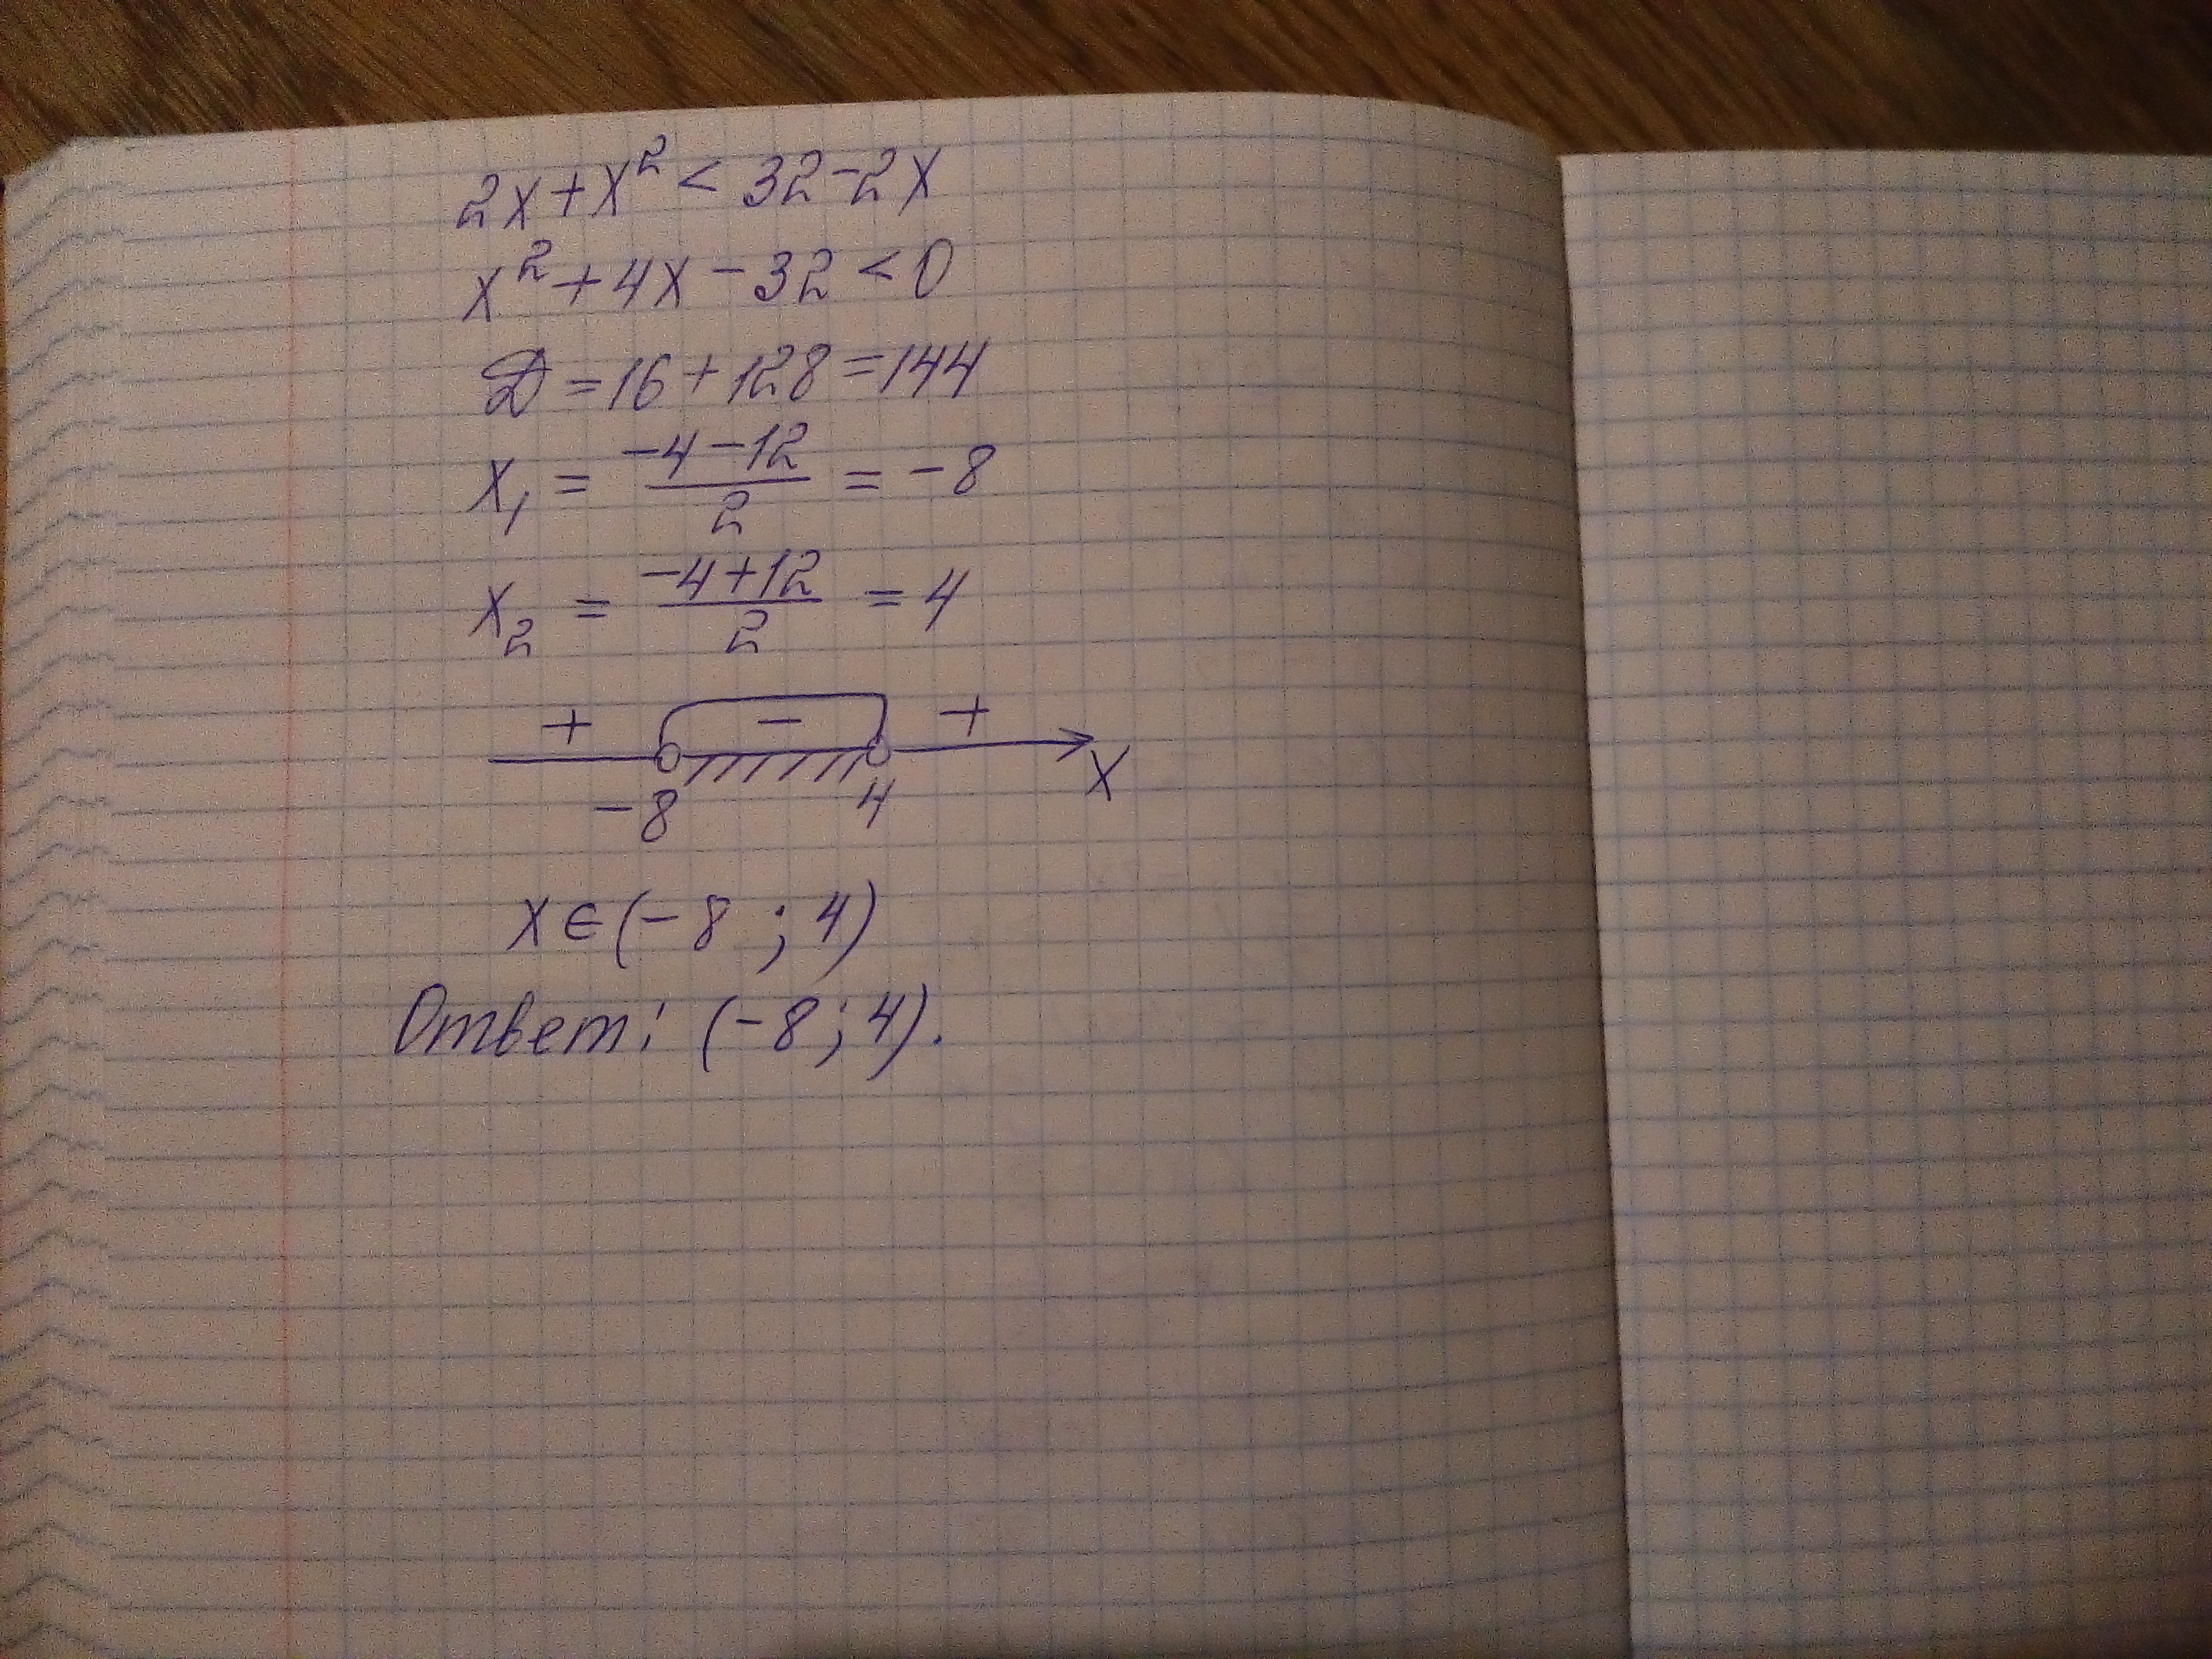 2x+x² < 32-2x
x²+4x-32<0
D=16+128=144
x₁ = (-4-12)/2 = -8
x₂ = (-4+12)/2 = 4
+ - +
-8 4 x
x∈(-8 ; 4)
Ответ: (-8; 4).